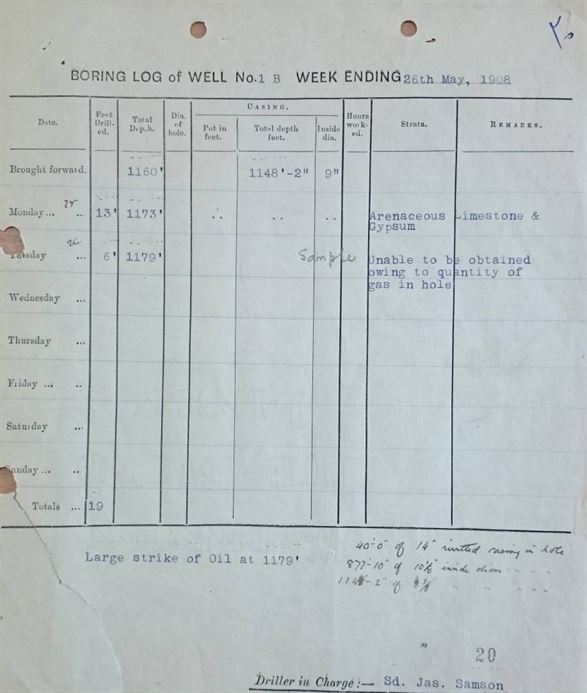 BORING LOG of WELL No.1 B WEEK ENDING 26th May, 1908
Date. Feet Drill-ed. Total Depth. Dia. of hole. CASING. Put in feet. Total depth feet. Inside dia. Hours work-ed. Strata. REMARKS.
Brought forward. 1160' 1148'-2" 9"
Monday... 25 13' 1173' Arenaceous Limestone &
Gypsum
Tuesday 26 ... 6' 1179' Sample Unable to be obtained
owing to quantity of
gas in hole
Wednesday ...
Thursday ...
Friday ...
Saturday ...
Sunday ...
Totals ... 19
Large strike of Oil at 1179'
40'-0" of 14" casing in hole
877'-10" of inside diam
of
20
Driller in Charge:— Sd. Jas. Samson